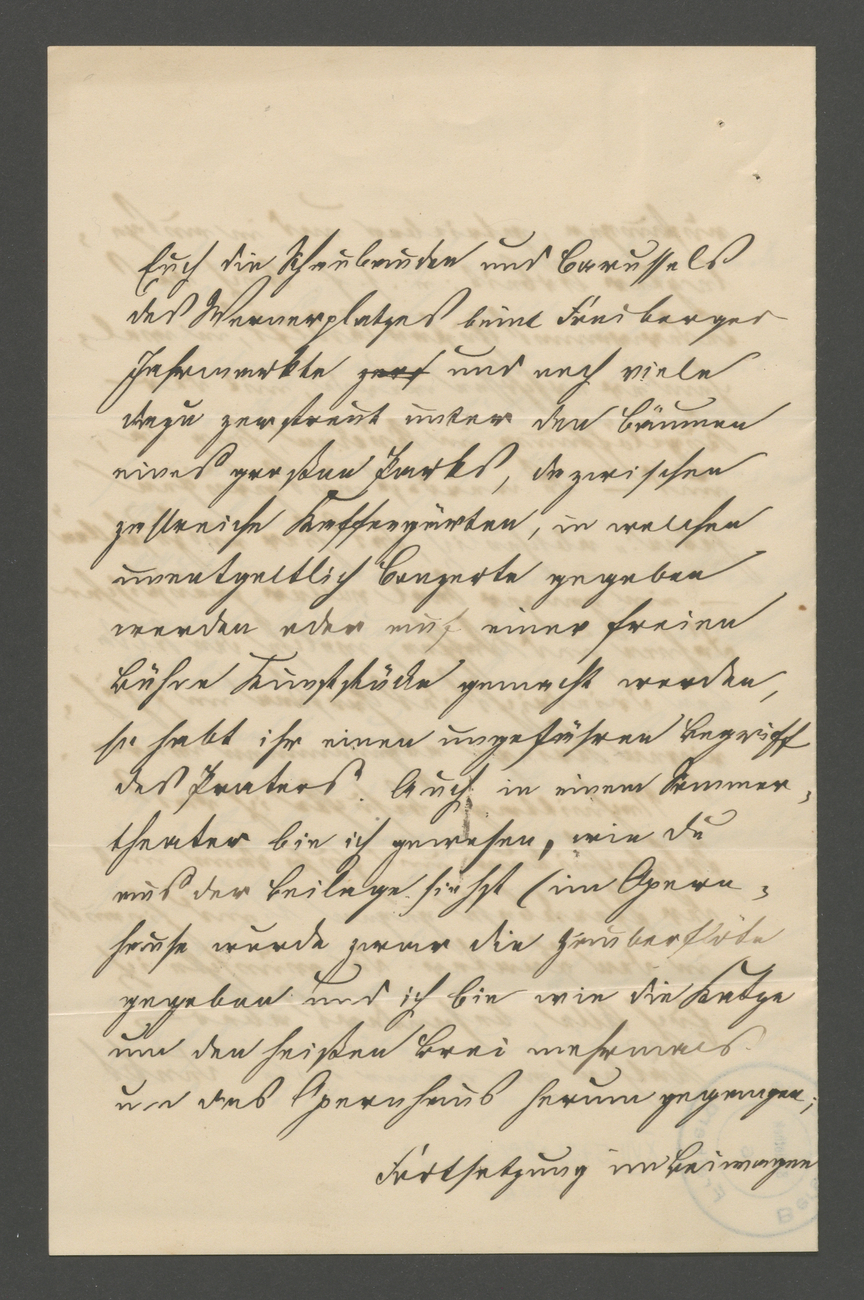 Euch die Schaubuden und Carussels
des Wernerplatzes beim Freiberger
Jahrmarkte zers und noch viele
dazu zerstreut unter den Bäumen
eines großen Parks, dazwischen
zahlreiche Kaffeegärten, in welchen
unentgeltlich Conzerte gegeben
werden oder auf einer freien
Bühne Kunststücke gemacht werden,
so habt ihr einen ungefähren Begriff
des Praters. Auch in einem Sommer-
theater bin ich gewesen, wie Du
aus der Beilage siehst (im Opern-
hause wurde zwar die Zauberflöte
gegeben und ich bin wie die Katze
um den heißen Brei mehrmals
um das Opernhaus herum gegangen;
Fortsetzung im Beiwagen